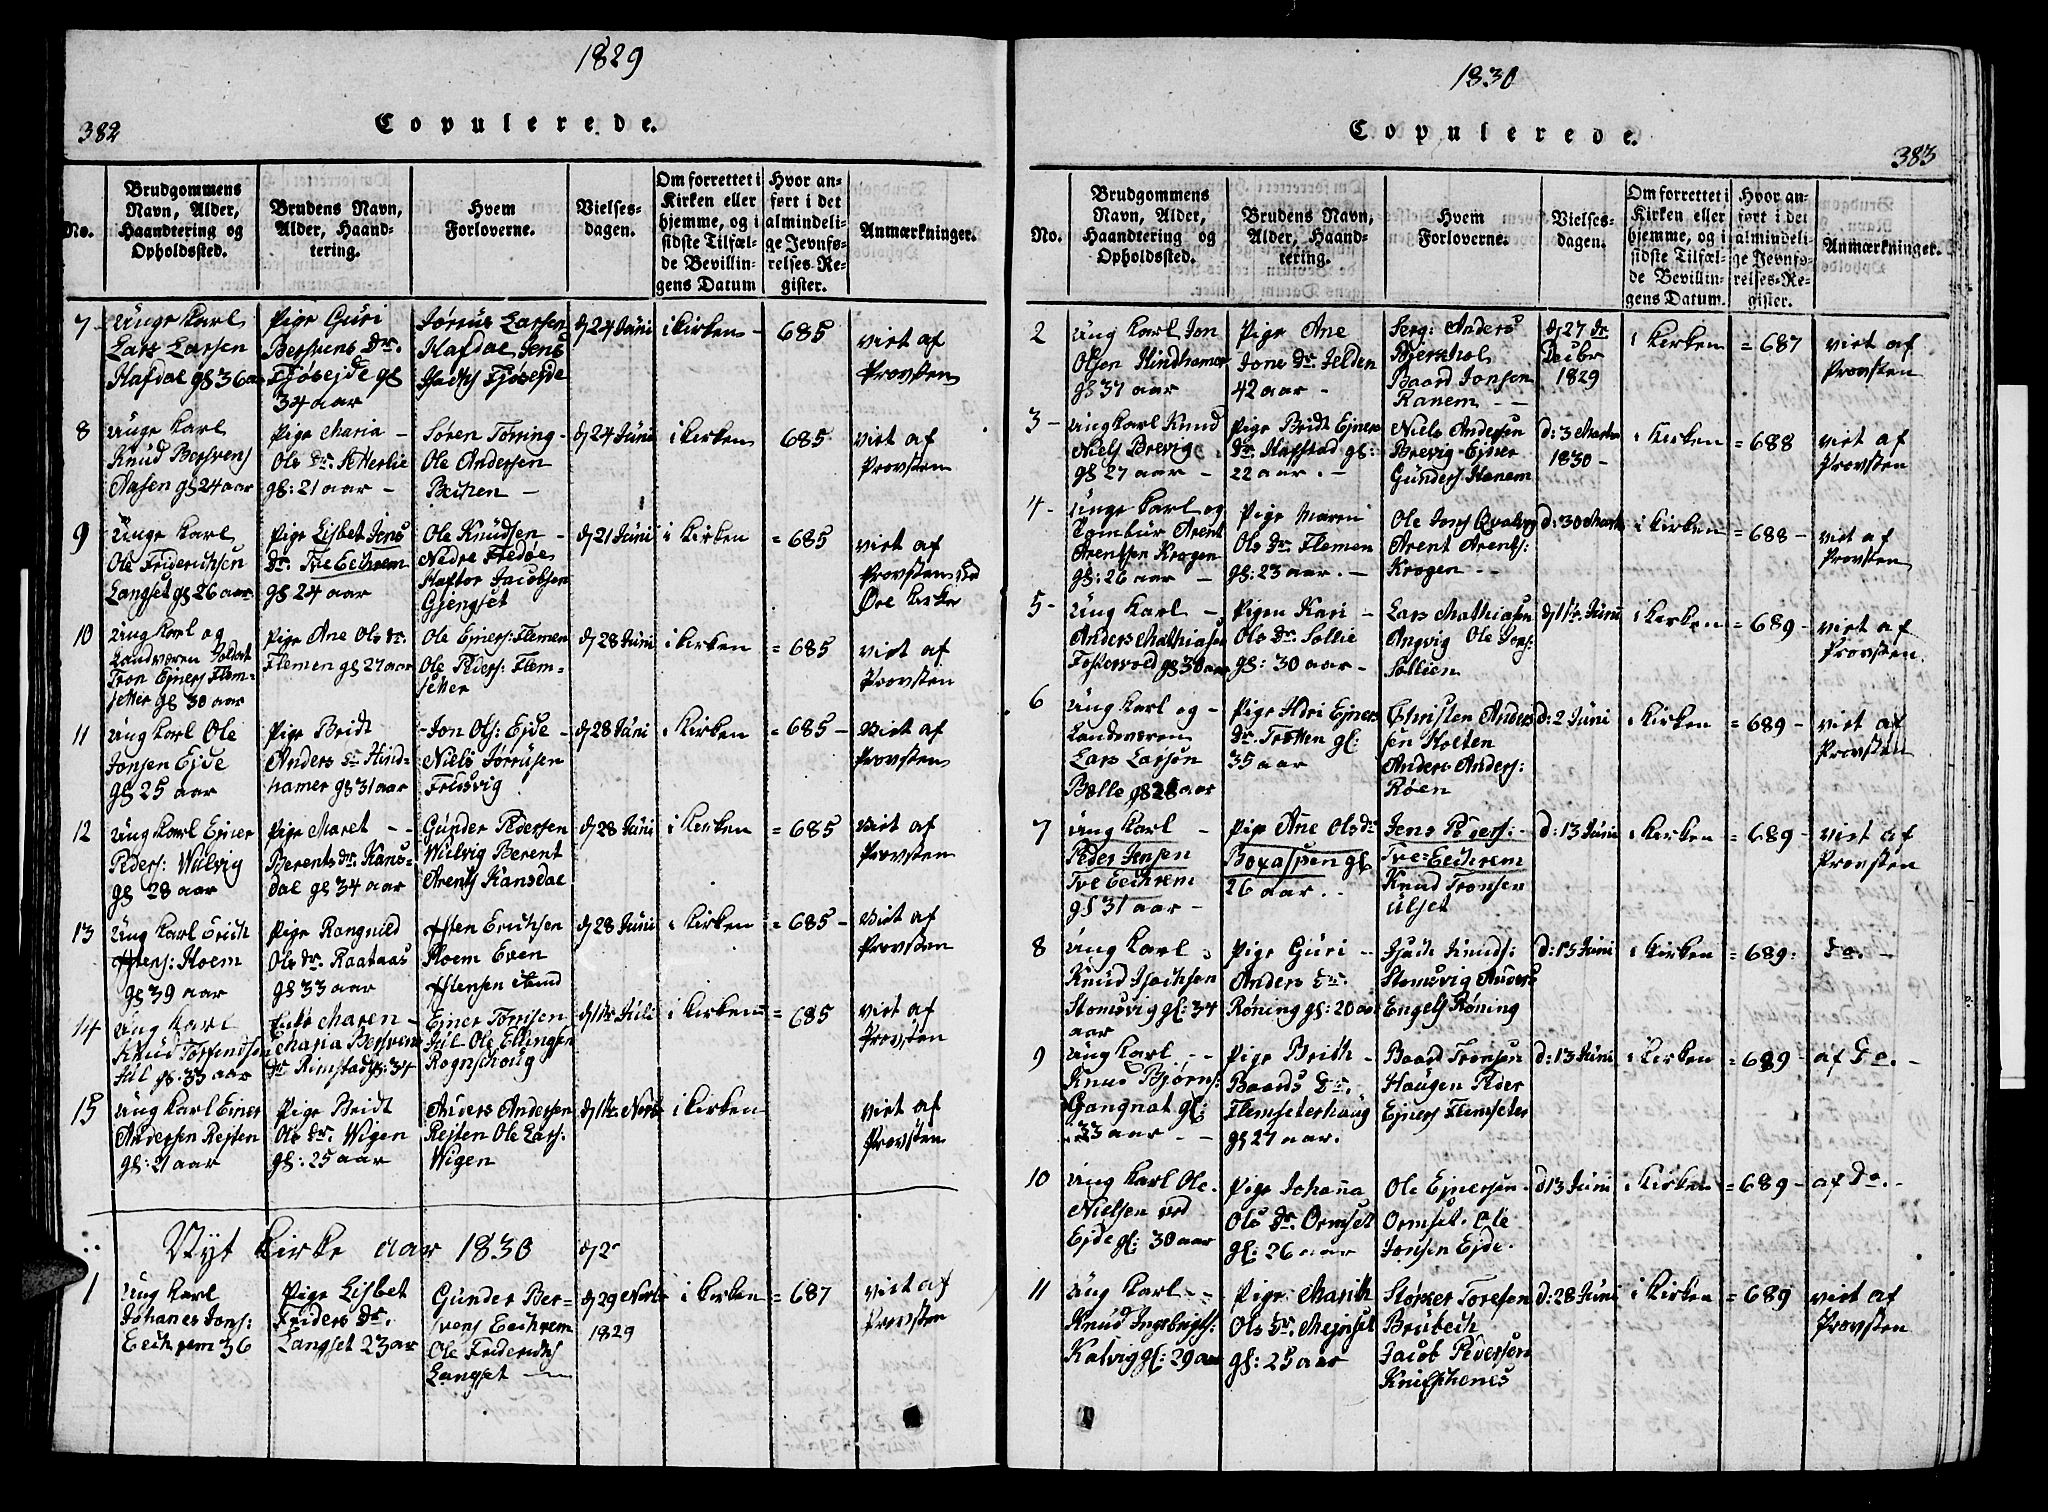 1829
382
Copulerede.
No.
Brudgommens Navn, Alder, Haandtering og Opholdssted.
Brudens Navn, Alder, Haandtering.
Hvem Forloverne.
Vielses-dagen.
Om forrettet i Kirken eller hjemme, og i sidste Tilfælde Bevillingens Datum
Hvor anført i det almindelige Jevnførelses-Register.
Anmærkninger.
7 Unge Karl Lars Larsen Hafdal gl 36 aar
Pige Guri Bersvens Dr. Fjøsejde gl 34 aar
Jørrus Larsen Hafdal Jens Fjøsejde
d 24 Juni
i Kirken
685
viet af Provsten
8 Unge Karl Knud Bersvens Aasen gl 24 aar
Pige Maria Ols Dr. gl: 21 aar
Søren Tørring Ole Andersen
d 24 Juni
i Kirken
685
viet af Provsten
9 Unge Karl Ole Friderichsen Langset gl 26 aar
Pige Lisbet Jens Dr. Tve Eechrem gl 24 aar
Ole Knudsen Nedre Fredøe Haftor Jacobsen Gjengset
d 21 Juni
i Kirken
= 685
viet af Provsten Øre Kirke
10 Ung Karl og Landværen Soldat Tron Ejners Flemsetter gl 30 aar
Pige Ane Ols dr. Flemen gl 27 aar
Ole Ejners: Flemen Ole Peders: Flemsetter
d 28 Juni
i Kirken
= 685
viet af Provsten
11 Ung Karl Ole Jonsen Ejde gl 25 aar
Pige Bridt Anders Dr Hindhamer gl 31 aar
Jon Ols: Ejde Niels Jørrusen Fredsvig
d 28 Juni
i Kirken
= 685
viet af Provsten
12 Ung Karl Ejner Peders: Wulvig gl 28 aar
Pige Maret Berents dr. Kansdal gl 34 aar
Gunder Pedersen Wulvig Berent Arents Kansdal
d 28 Juni
i Kirken
= 685
viet af Provsten
13 Ung Karl Erich Estens: Hoem gl 39 aar
Pige Rangnild Ols dr. Raataas gl 33 aar
Esten Erichsen Hoem Even Estensen
d 28 Juni
i Kirken
= 685
viet af Provsten
14 Ung Karl Knud gl. 33 aar
Enke Maren Maria Bersvens dr Rimstad gl: 34
Ejner Ole Ellingsen Rognschoug
Juli
i Kirken
= 685
viet af Provsten
15 Ung Karl Ejner Andersen Rejten gl: 21 aar
Pige Bridt Ols dr. Wigen gl: 25 aar
Anders Andersen Rejten Ole Lars: Wigen
i Kirken
viet af Provsten
Nyt Kirke aar 1830
1 Ung Karl Johanes Jons: Eechrem 36
Pige Lisbet Friders Dr. Langset 23 aar
Gunder Bersvens Eechrem Ole Friderichs Langset
d 29 Novb 1829
i Kirken
= 687
viet af Provsten
1830
383
Copulerede.
No.
Brudgommens Navn, Alder, Haandtering og Opholdssted.
Brudens Navn, Alder, Haandtering.
Hvem Forloverne.
Vielses-dagen.
Om forrettet i Kirken eller hjemme, og i sidste Tilfælde Bevillingens Datum.
Hvor anført i det almindelige Jevnførelses-Register.
Anmærkninger.
2 Ung Karl Jon Olsen Hindhamer gl 37 aar
Pige Ane Jons Dr. Jelden 42 aar
Serg: Anders Bjerschol Baard Jonsen Ranem
d 27 Decbr 1829
i Kirken
= 687
viet af Provsten
3 Ung Karl Knud Niels Brevig gl 27 aar
Pige Bridt Ejners Dr. Hafstad gl: 22 aar.
Niels Andersen Brevig Ejner Gunders: Hanem
d: 3 Marts 1830
i Kirken
= 688
viet af Provsten
4 Unge Karl og Tambur Arent Arentsen Krogen gl: 26 aar
Pige Maren Ols Dr. Flemen gl: 23 aar.
Ole Jons Arent Arents: Krogen
d: 30 Marts
i Kirken
= 688
viet af Provsten
5 Ung Karl Anders Mathiasen Fostervold gl 30 aar
Pigen Kari Ols Dr. Sollie gl: 30 aar
Lars Mathiasen Angvig Ole Jons: Sollien
Juni
i Kirken
= 689
viet af Provsten.
6 Ung Karl og Landværen Lars Larsen Bølle gl 28 aar
Pige Ildri Ejners Dr. Trætten gl: 35 aar
Christen Andersen Holten Anders Anders: Røen
d: 2 Juni
i Kirken
= 689
viet af Provsten
7 Ung Karl Peder Jensen Tve Eechrem gl 31 aar
Pige Ane Ols dr Boxaspen gl 26 aar.
Jens Peders: Tve Eechrem Knud Tronsen Ulset
d: 13 Juni
i Kirken
= 689
viet af Provsten
8 Ung Karl Knud Isachsen Stomsvig gl: 34 aar
Pige Guri Anders Dr. Røning gl: 20 aar
Isach Knuds: Stomsvig Anders Engels Røning
d: 13 Juni
i Kirken
= 689
Do.
9 Ung Karl Knud Bjørns: Gangnat gl: 33 aar
Pige Brith Baards Dr. Flemseterhaug gl 27 aar.
Baard Tronsen Haugen Peder Ejners Flemseter
d: 13 Juni
i Kirken
= 689
af Do.
10 Ung Karl Ole Nielsen ved Ejde gl: 30 aar
Pige Johanna Ols Dr. Ormset gl: 26 aar
Ole Ejnersen Ormset. Ole Jonsen Ejde.
d 13 Juni
i Kirken
= 689
af Do.
11 Ung Karl Knud Ingebrigts: Kalvig gl: 29 aar
Pige Marith Ols Dr. Mejnset gl: 25 aar
Størker Toresen Brubech Jacob Pedersen Knulphenes
d: 28 Juni
i Kirken
= 689
viet af Provsten